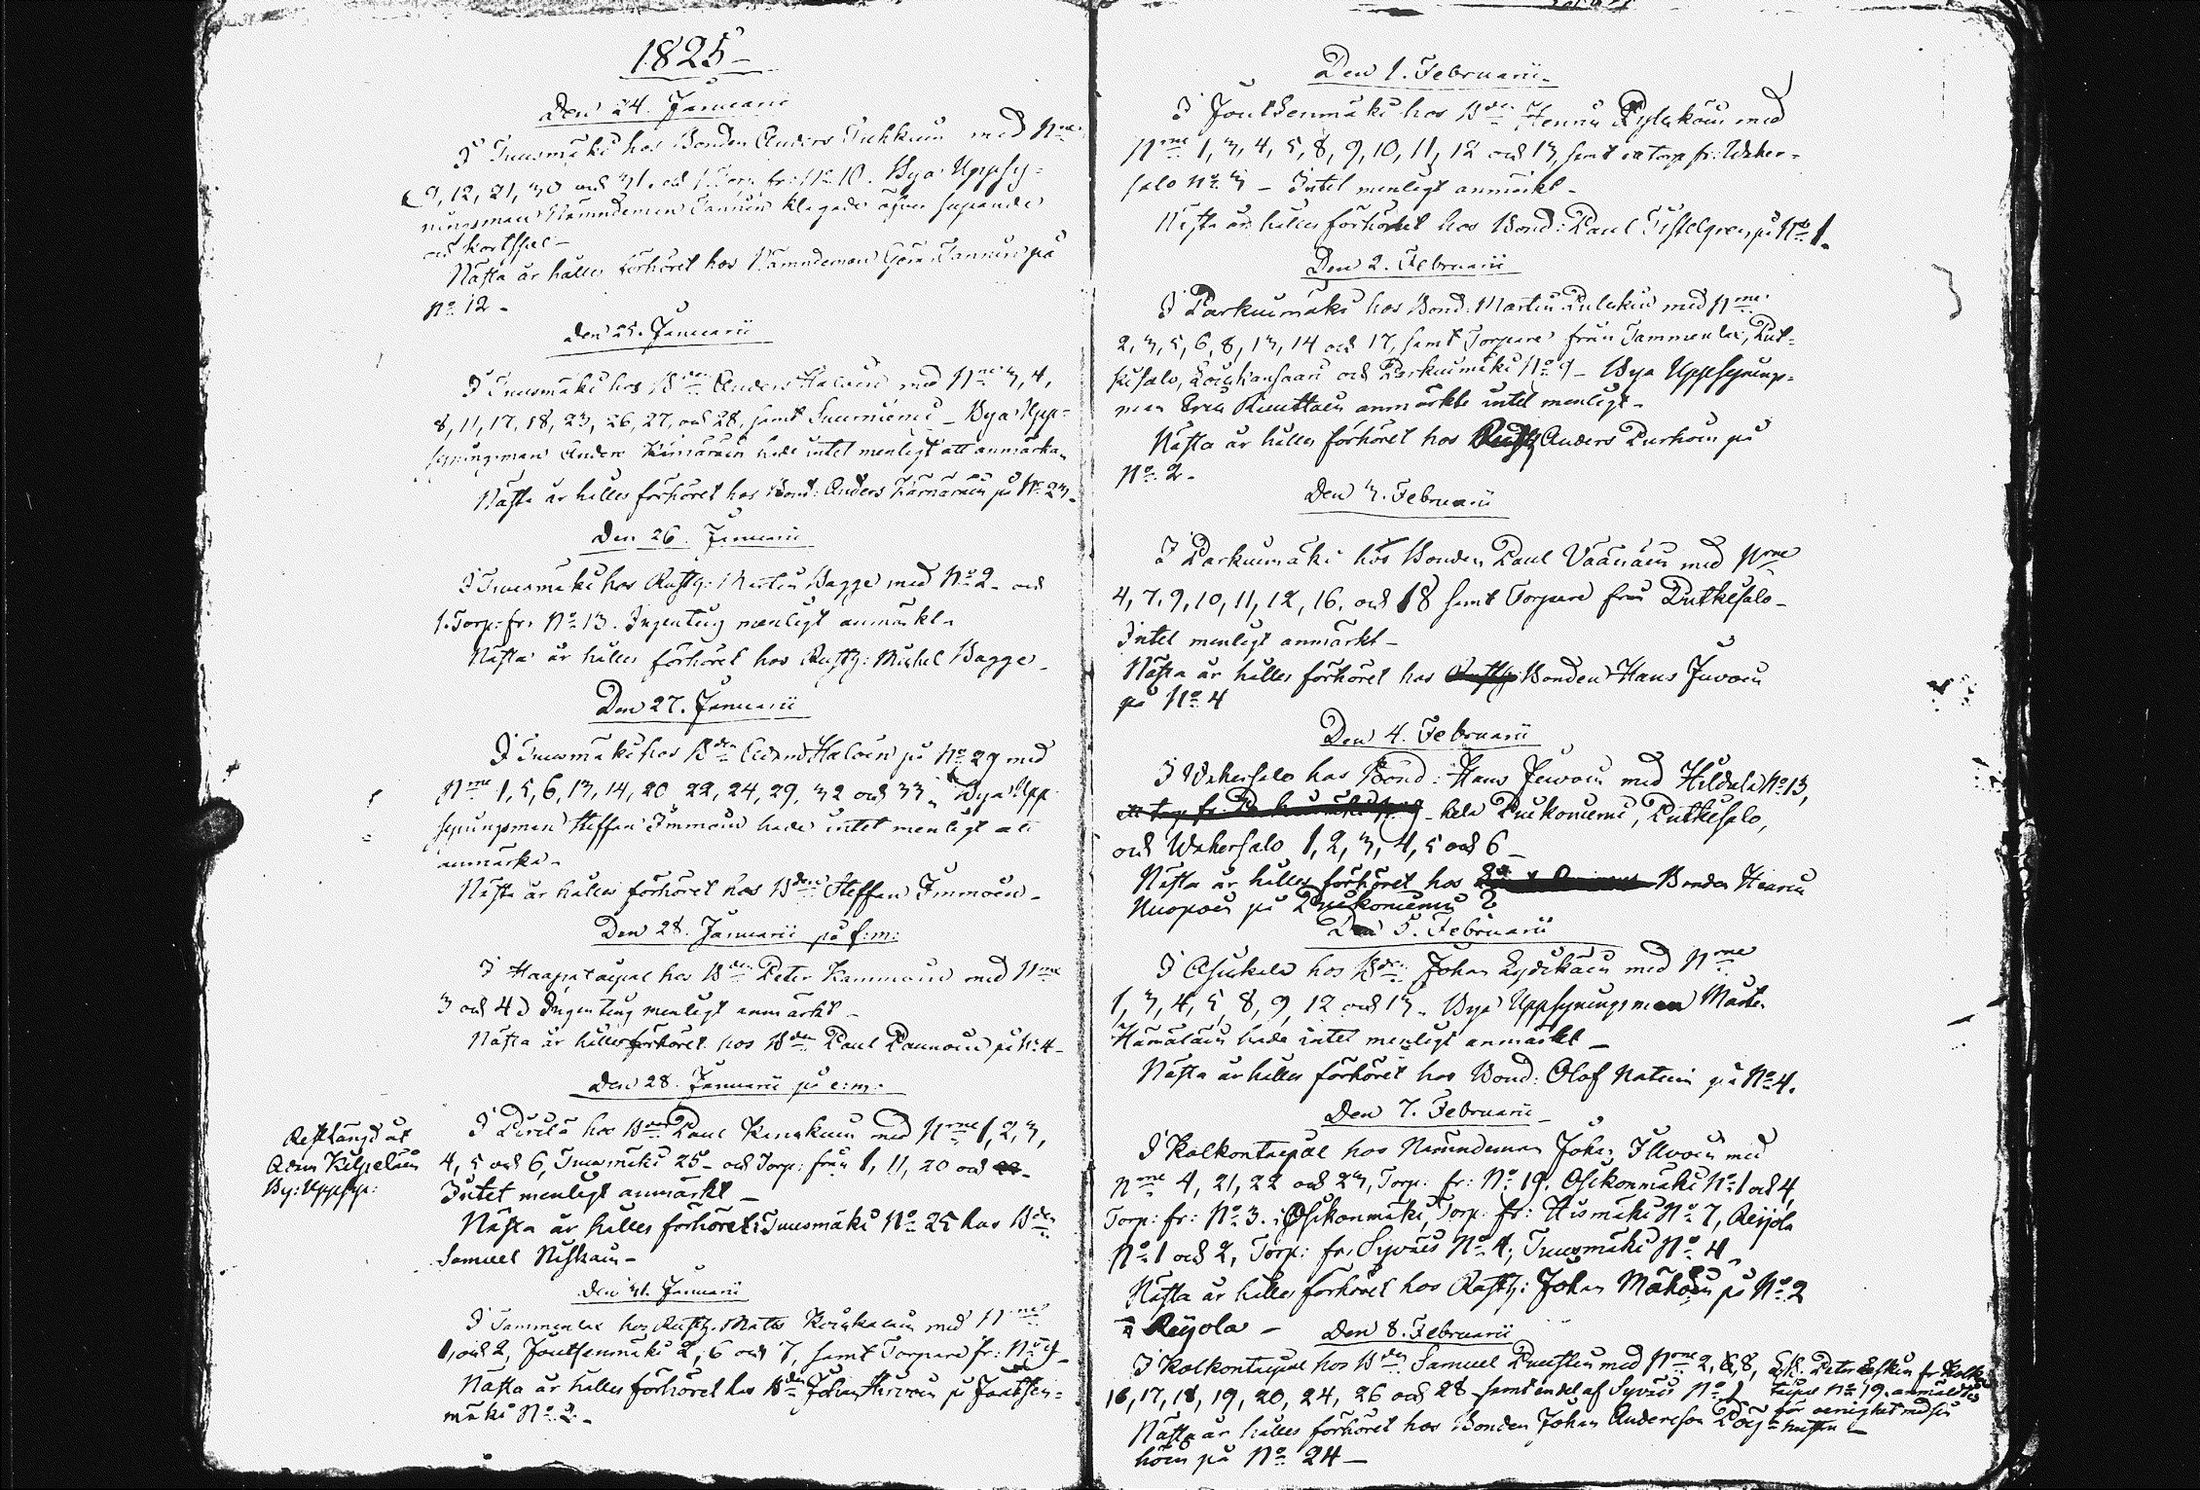 1825
Den 24. Januarii
I Tuusmäki hos Bonden Anders Tukkuin med Nrne
9, 12, 21, 30 och 31. och 1 Torp. fr: No 10. Bya Uppsy-
ningsman Nämndeman Tannin klagade öfver supande
och kortspel -
Nästa år hålles förhöret hos Nämndeman Göran Tannin på
No 12 -
den 25. Januarii
I Tuusmäki hos Bden Anders Haloin med Nrne 3, 4,
8, 11, 17, 18, 23, 26, 27, och 28, samt Suurniemi - Bya Upp-
syningsman Anders Kärnäräin hade intet menligt att anmärka -
Nästa år hålles förhöret hos Bond: Anders Kärnäräin på No 23 -
Den 26. Januarii
I Tuusmäki hos Rusth: Martin Bagge med No 2 - och
1. Torp: fr: No 13. Ingenting menligt anmärkt -
Nästa år hålles förhöret hos Rusth: Michel Bagge -
Den 27. Januarii
I Tuusmäki hos Bden Adam Haloin på No 29 med
Nrne 1, 5, 6, 13, 14, 20 22, 24, 29, 32 och 33, Bya Upp-
syningsman Steffan Immoin hade intet menligt att
anmärka -
Nästa år hålles förhöret hos Bden Steffan Immoin -
Den 28. Januarii på f:m:
I Haapataipal hos Bden Peter Kammoin med Nrne
3 och 4. Ingenting menligt anmärkt -
Nästa år hålles förhöret hos Bden Paul Paunoin på No 4 -
den 28. Januarii på e:m:
Restlängd åt
Adam Kilpeläin
By: Uppsy:
I Pirilä hos Bden Paul Kinnkuin med Nrne 1, 2, 3,
4, 5 och 6, Tuusmäki 25 - och Torp: från 1, 11, 20 och
Intet menligt anmärkt -
Nästa år hålles förhöret i Tuusmäki No 25 hos Bden
Samuel Niskain -
den 31. Januarii
I Tammenlax hos Rusth. Matts Koukkuin med Nrne
1, och 2, Joutsenmäki 2, 6 och 7, samt Torpare fr: No 9 -
Nästa år hålles förhöret hos Bden Johan Hirvoin på Joutsen-
mäki No 2 -
Den 1. Februarii -
I Joutsenmäki hos Bden Henric Pylkköin med
Nrne 1, 3, 4, 5, 8, 9, 10, 11, 12 och 13, samt en torp fr: Waher-
salo No 3 - Intet menligt anmärkt -
Nästa år hålles förhöret hos Bond: Paul Tistelgren på No 1 -
Den 2. Februarii
I Parkuinmäki hos Bond. Martin Pulckin med Nrne
2, 3, 5, 6, 8, 13, 14 och 17, samt Torpare från Tammenlax, Put-
kisalo, Louhiansaari och Parkuinmäki No 9 - Bya Uppsynings-
man Eric Ruuttain anmärkte intet menligt -
Nästa år hålles förhöret hos Anders Purhoin på
No 2 -
Den 3. Februarii
I Parkuinmäki hos Bonden Paul Väänäin med Nrne
4, 7, 9, 10, 11, 12, 16, och 18 samt Torpare från Putkisalo -
Intet menligt anmärkt -
Nästa år hålles förhöret hos Bonden Hans Juvoin
på No 4
Den 4. Februarii
I Wahersalo hos Bond: Hans Juvoin med Hildula No 13,
hela Puikoniemi, Putkisalo,
och Wahersalo 1, 2, 3, 4, 5 och 6 -
Nästa år hålles förhöret hos Bonden Henric
Nuopoin på Puikoniemi 2
Den 5. Februarii
I Asikala hos Bden Johan Lyytikäin med Nrne
1, 3, 4, 5, 8, 9, 12 och 13. Bya Uppsyningsman Mårten
Hämäläin hade intet menligt anmärkt -
Nästa år hålles förhöret hos Bond: Olof Natuin på No 4.
Den 7. Februarii
I Kolkontaipal hos Nämndeman Johan Ilvoin med
Nrne 4, 21, 22 och 23, Torp. fr: No 19. Osikonmäki No 1 och 4,
Torp: fr: No 3. i Osikonmäki, Torp. fr: Hismäki No 7, Reijola
No 1 och 2, Torp: fr: Syväis No 4, Tuusmäki No 4
Nästa år hålles förhöret hos Rusth: Johan Mähöin på No 2
i Reijola -
Den 8. Februarii
I Kolkontaipal hos Bden Samuel Puustin med Nrne 2, 6, 8,
16, 17, 18, 19, 20, 24, 26 och 28 samt en del af Syväis No 1
Peter Eskin fr Kolkon-
taipal No 19. anmäldtes
för oenighet med sin
hustru -
Nästa år hålles förhöret hos Bonden Johan Andersson Pöy-
höin på No 24 -